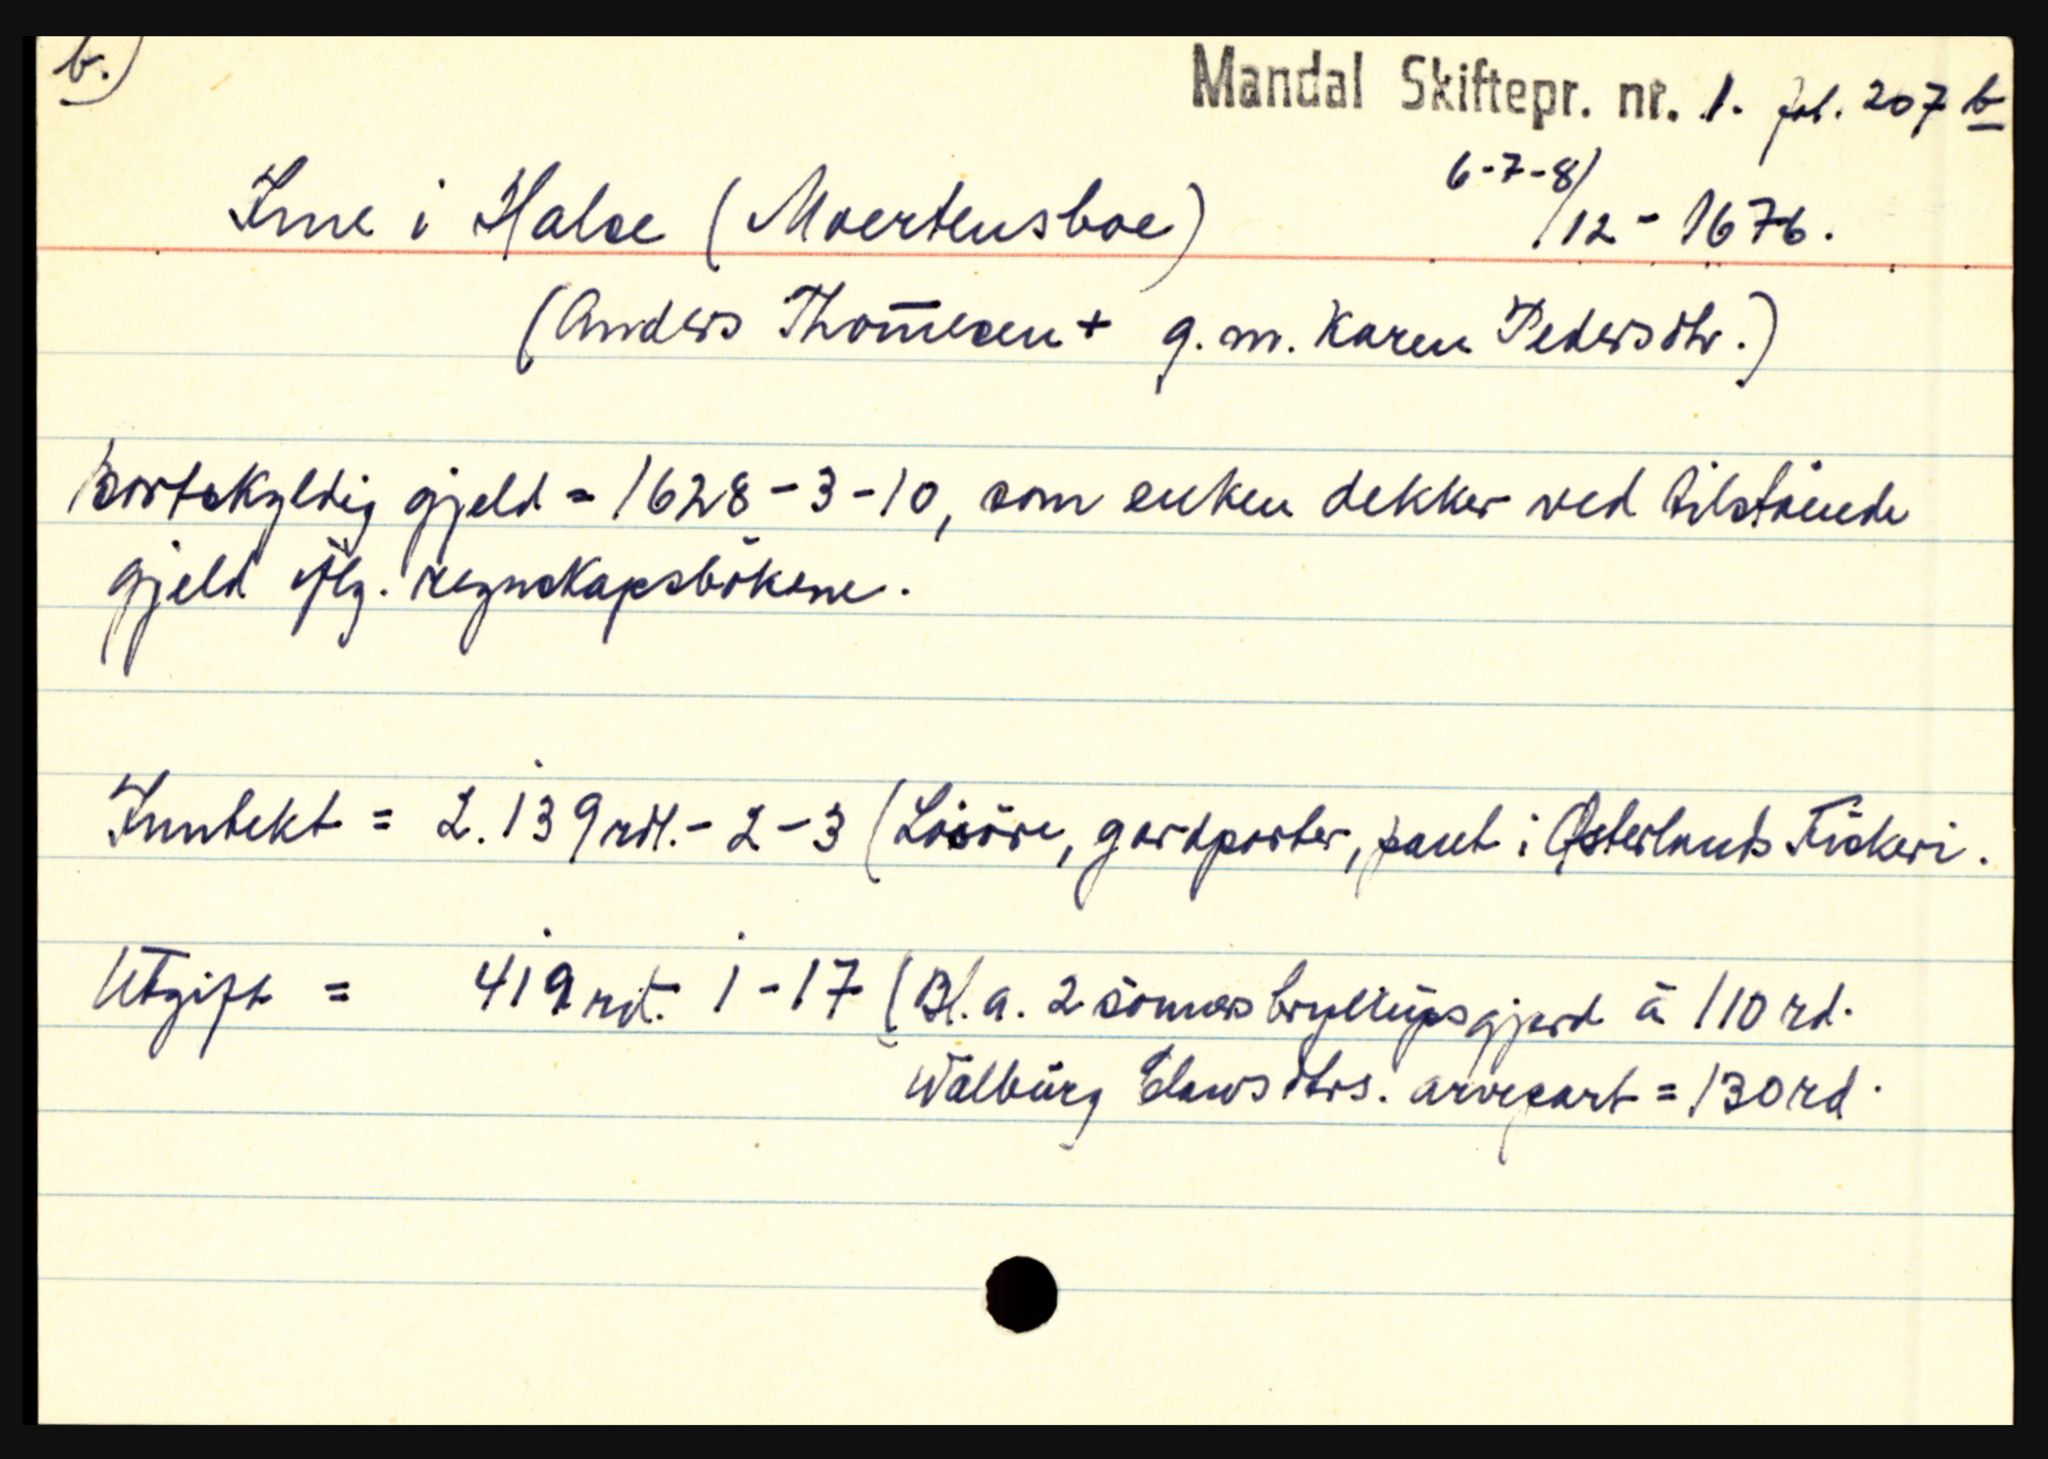 b.)
Mandal Skiftepr. nr. 1. fol. 207 b
Ime i Halse (Moertensboe) 6-7-8/12 - 1676.
(Anders Thom̅esen + g. m. Karen Pedersdtr.)
bortskyldig gjeld = 1628 - 3 - 10, som enken dekker ved tilstående
gjeld iflg. regnskapsbökene.
Inntekt = 2.139 rdl. - 2 - 3 (Lösöre, gardparter, pant i Østerlands Fiskeri.
Utgift = 419 rd. 1 - 17 (Bl. a. 2 sönners bryllupsgjerd à 110 rd.
Walburg Clawsdtrs. arvepart = 130 rd.